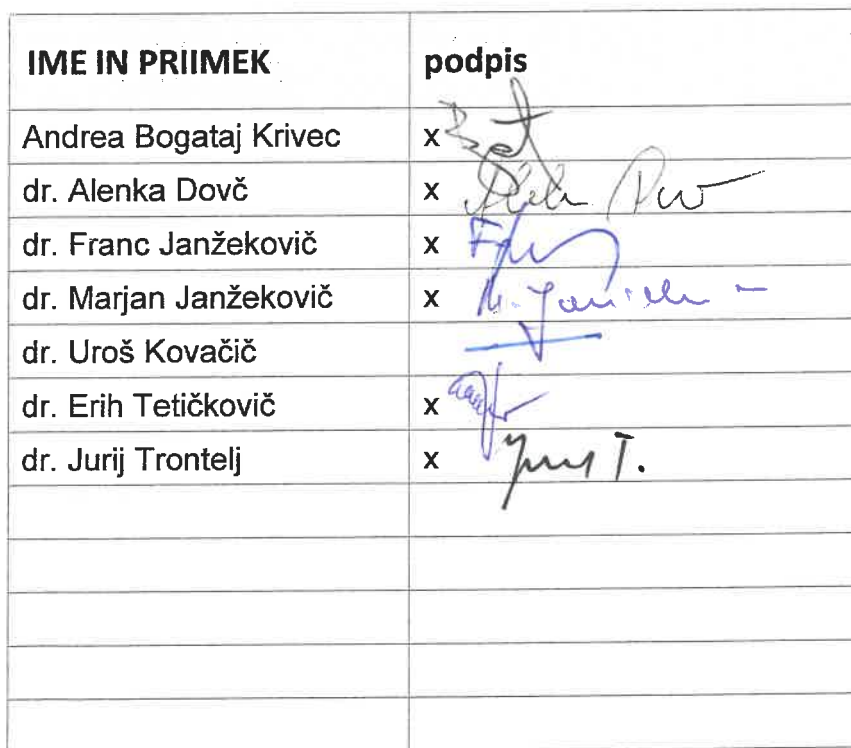 IME IN PRIIMEK podpis
Andrea Bogataj Krivec x
dr. Alenka Dovč x
dr. Franc Janžekovič x
dr. Marjan Janžekovič x
dr. Uroš Kovačič
dr. Erih Tetičkovič x
dr. Jurij Trontelj x